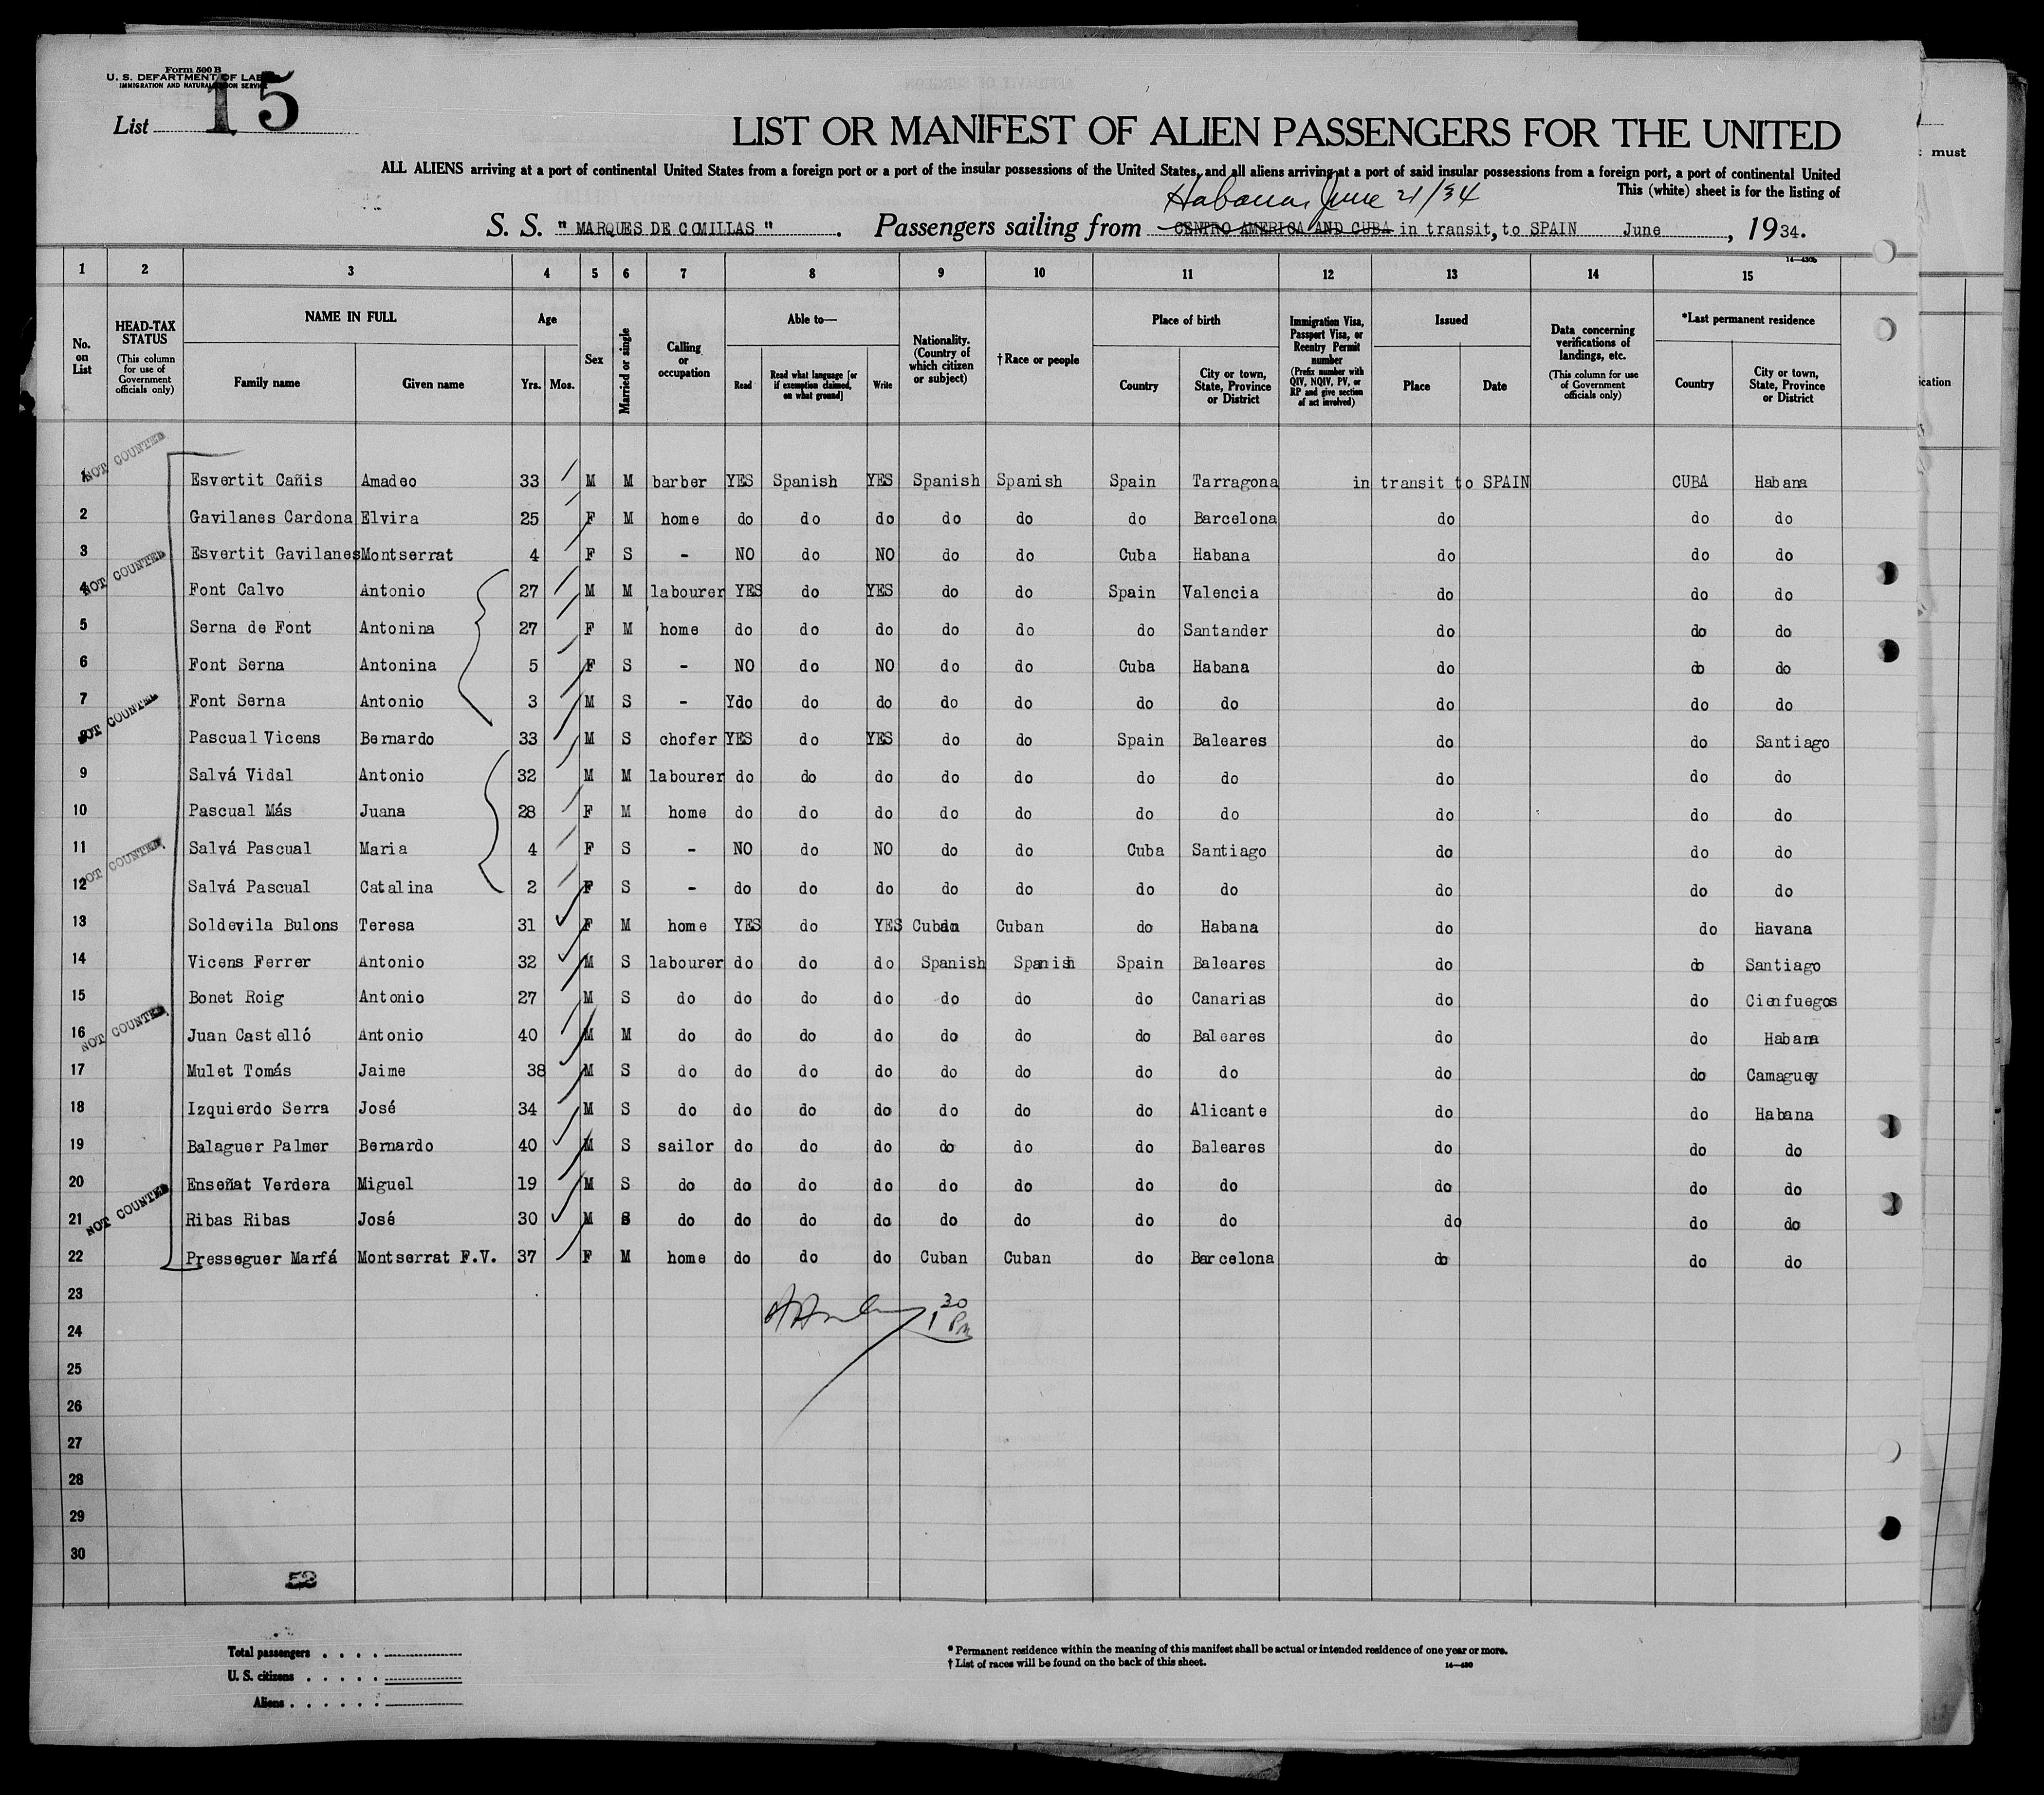 Form 500 B
U. S. DEPARTMENT OF LAB
IMMIGRATION AND NATURALIZATION SERVICE
List 15
LIST OR MANIFEST OF ALIEN PASSENGERS FOR THE UNITED
ALL ALIENS arriving at a port of continental United States from a foreign port or a port of the insular possessions of the United States, and all aliens arriving at a port of said insular possessions from a foreign port, a port of continental United
must
This (white) sheet is for the listing of
Habana, June 21/34
S. S. " MARQUES DE COMILLAS " . Passengers sailing from CENTRO AMERICA AND CUBA in transit, to SPAIN June , 1934.
14—430b
1 2 3 4 5 6 7 8 9 10 11 12 13 14 15
No. on List HEAD-TAX STATUS (This column for use of Government officials only) NAME IN FULL Family name Given name Age Yrs. Mos. Sex Married or single Calling or occupation Able to— Read Read what language [or if exemption claimed, on what ground] Write Nationality. (Country of which citizen or subject) †Race or people Place of birth Country City or town, State, Province or District Immigration Visa, Passport Visa, or Reentry Permit number (Prefix number with QIV, NQIV, PV, or RP and give section of act involved) Issued Place Date Data concerning verifications of landings, etc. (This column for use of Government officials only) *Last permanent residence Country City or town, State, Province or District
ication
NOT COUNTED
1 Esvertit Cañis Amadeo 33 M M barber YES Spanish YES Spanish Spanish Spain Tarragona in transit to SPAIN CUBA Habana
2 Gavilanes Cardona Elvira 25 F M home do do do do do do Barcelona do do do
3 Esvertit Gavilanes Montserrat 4 F S - NO do NO do do Cuba Habana do do do
NOT COUNTED
4 Font Calvo Antonio 27 M M labourer YES do YES do do Spain Valencia do do do
5 Serna de Font Antonina 27 F M home do do do do do do Santander do do do
6 Font Serna Antonina 5 F S - NO do NO do do Cuba Habana do do do
7 Font Serna Antonio 3 M S - Ydo do do do do do do do do do
NOT COUNTED
8 Pascual Vicens Bernardo 33 M S chofer YES do YES do do Spain Baleares do do Santiago
9 Salvá Vidal Antonio 32 M M labourer do do do do do do do do do do
10 Pascual Más Juana 28 F M home do do do do do do do do do do
11 Salvá Pascual Maria 4 F S - NO do NO do do Cuba Santiago do do do
NOT COUNTED
12 Salvá Pascual Catalina 2 F S - do do do do do do do do do do
13 Soldevila Bulons Teresa 31 F M home YES do YES Cuban Cuban do Habana do do Havana
14 Vicens Ferrer Antonio 32 M S labourer do do do Spanish Spanish Spain Baleares do do Santiago
15 Bonet Roig Antonio 27 M S do do do do do do do Canarias do do Cienfuegos
NOT COUNTED
16 Juan Castelló Antonio 40 M M do do do do do do do Baleares do do Habana
17 Mulet Tomás Jaime 38 M S do do do do do do do do do do Camaguey
18 Izquierdo Serra José 34 M S do do do do do do do Alicante do do Habana
19 Balaguer Palmer Bernardo 40 M S sailor do do do do do do Baleares do do do
20 Enseñat Verdera Miguel 19 M S do do do do do do do do do do do
NOT COUNTED
21 Ribas Ribas José 30 M S do do do do do do do do do do do
22 Presseguer Marfá Montserrat F.V. 37 F M home do do do Cuban Cuban do Barcelona do do do
23
1 30 Pm
24
25
26
27
28
29
30
52
Total passengers
U. S. citizens
Aliens
* Permanent residence within the meaning of this manifest shall be actual or intended residence of one year or more.
† List of races will be found on the back of this sheet.
14—430